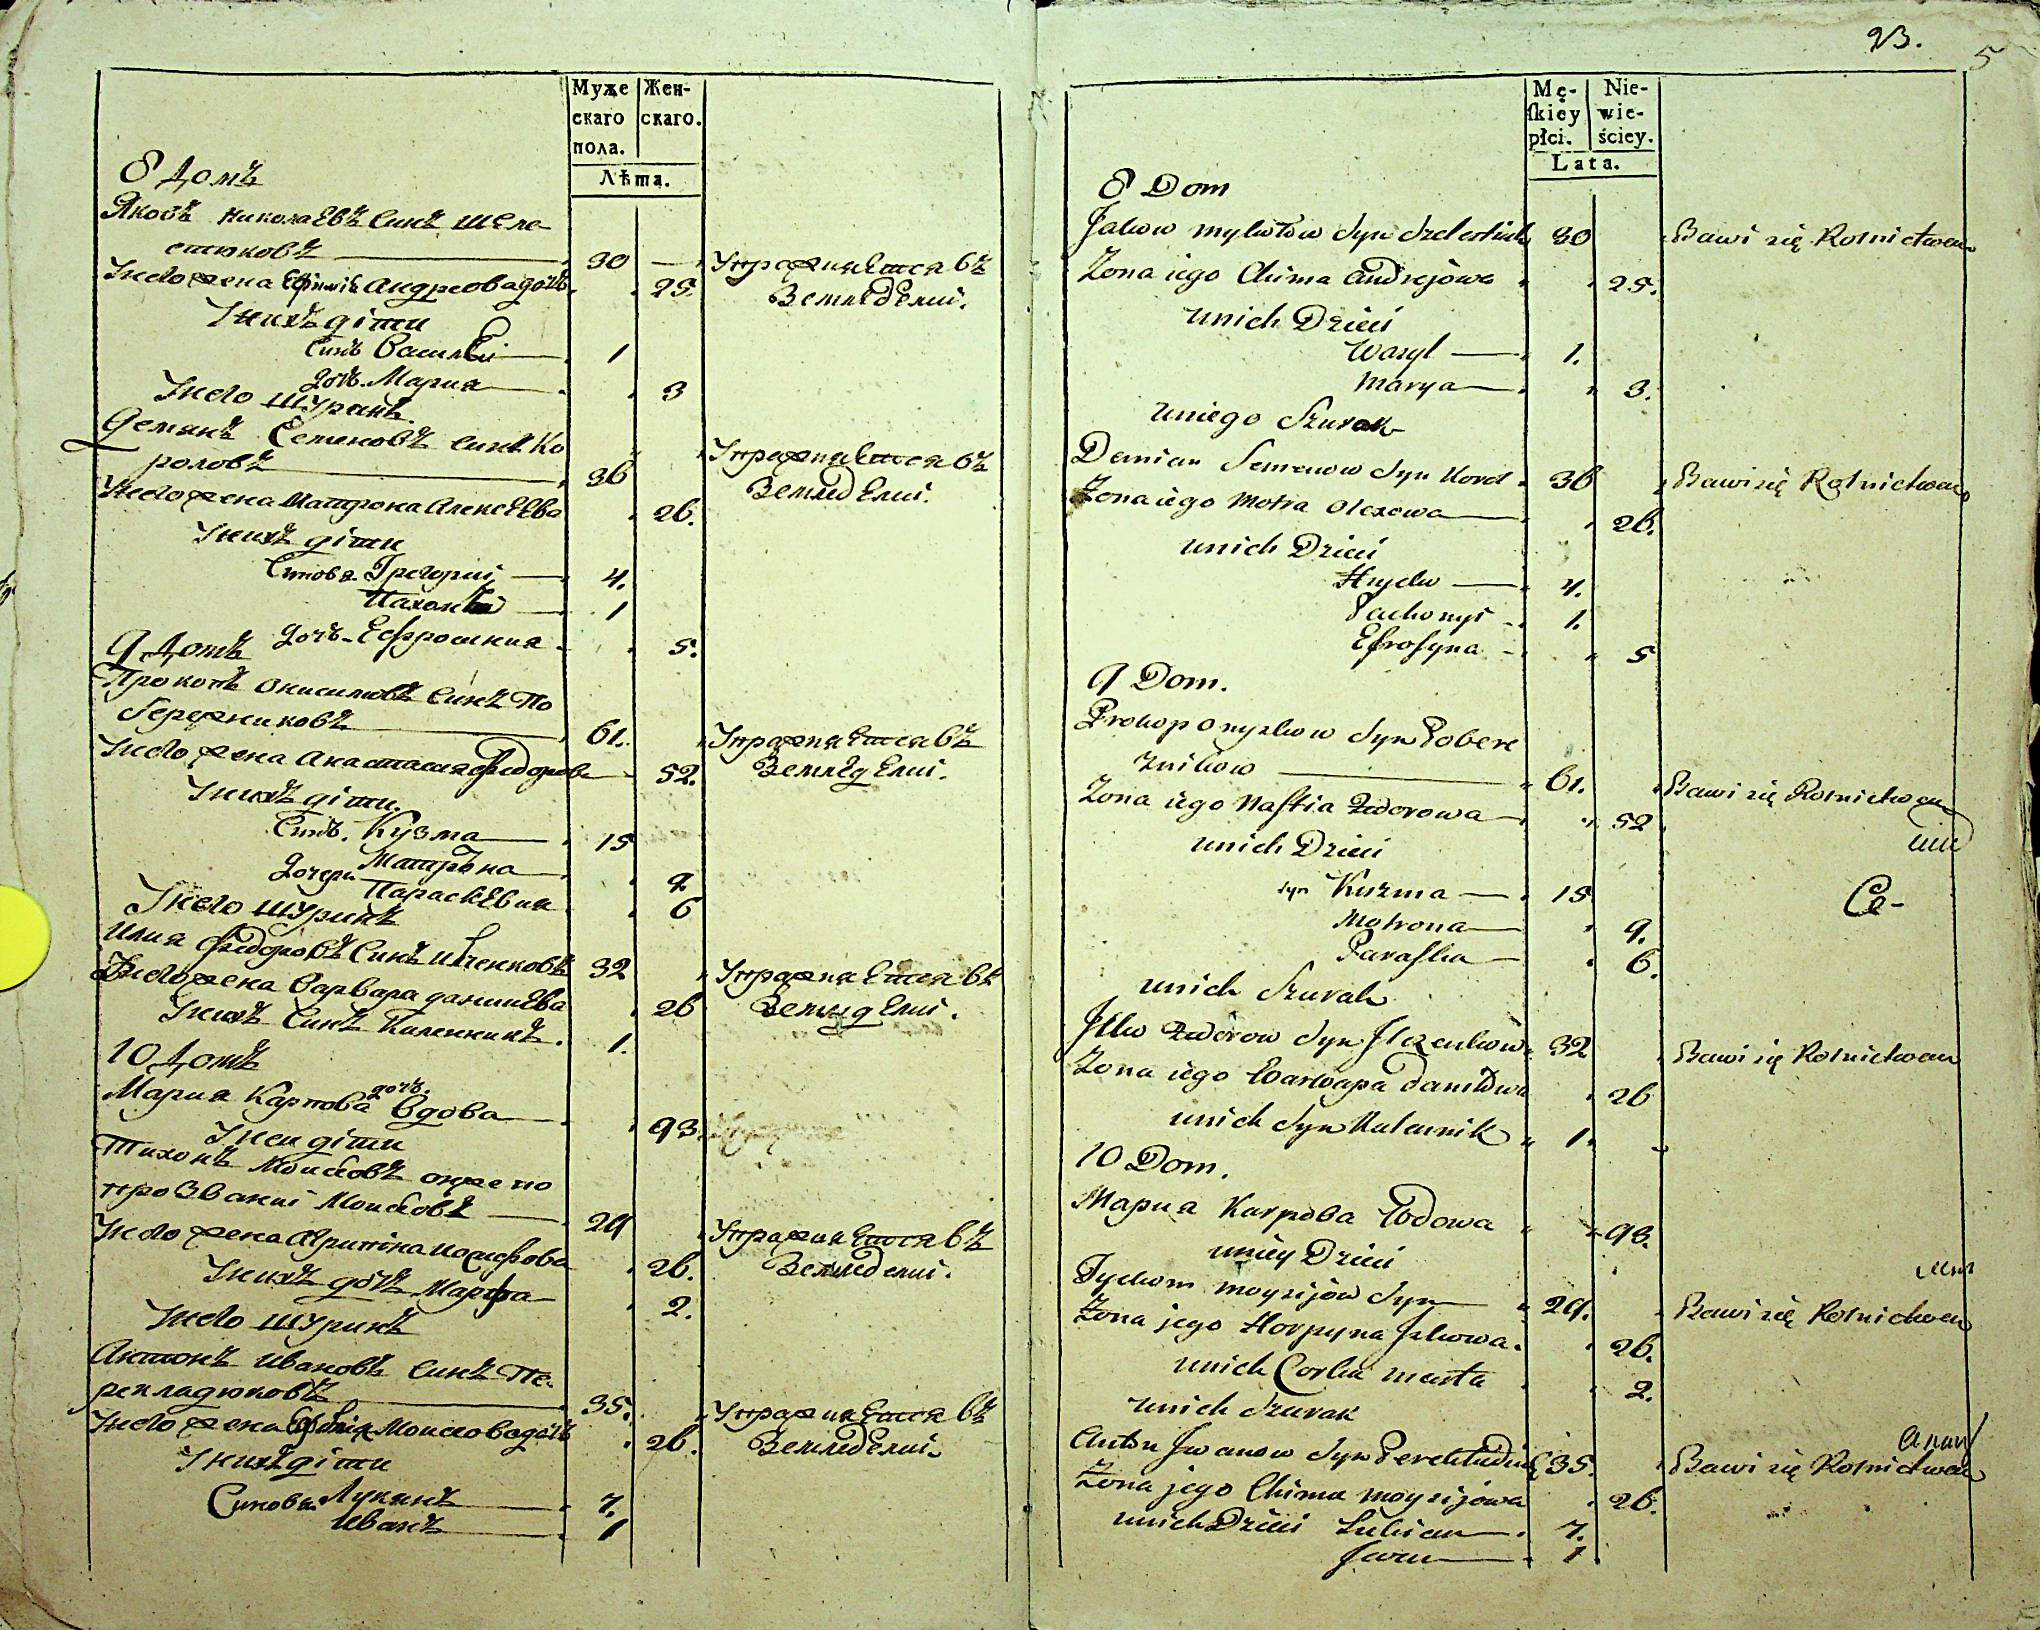 Муже
скаго
пола.
Жен-
скаго.
Лѣта.
8 Домъ
Яковъ Николаевъ Синъ Шеле
стюковъ 30 Упражняется въ
Его жена Ефимія Андреова дочь 25. Земледелиі.
У нихъ діти
Синъ Василей 1
дочь Мария 3
У него Шуринъ.
Демянъ Семеновъ синъ Ко
роловъ 36 Упражняется въ
Его жена Матрона Алексеева 26. Земледелиі.
У нихъ діти
Синовя Григориі 4.
Пахомій 1
дочь Ефросиния 5.
9 Домъ
Прокопъ Онисимовъ Синъ По
бережниковъ 61. Упражняется въ
Его жена Анастасия Федорова 52. Земледелиі.
У нихъ діти.
Синъ. Кузма 15
дочери Матрѣна 9
Параскевия 6
У него Шуринъ
Илия Федоровъ Синъ Илченковъ 32 Упражняется въ
Его жена Варвара данилева 26 Земледелиі.
У нихъ Синъ Каленникъ. 1.
10 Домъ
Мария Карпова дочь. Вдова 93.
У неи діти
Тихонъ Моисеовъ онже по
прозваниі Моисеовъ 29 Упражняется въ
Его жена Агрипина иосифова 26. Земледелиі.
У нихъ дочь Марфа 2.
У него Шуринъ
Антонъ Ивановъ Синъ Пе-
рекладюковъ 35. Упражняется въ
Его жена Ефимія Моисеова дочь 26. Земледелиі.
У нихъ діти
Синовя Лукянъ 7.
Иванъ 1
23.
5
Mę-
ſkiey
płci.
Nie-
wie-
ściey.
Lata.
8 Dom
Jakow mykołow Syn Szelestiuk 30 Bawi się Rolnictwem
Zona iego Chima Andrejowa 25.
unich Dzieci
Wasyl 1.
Marya 3.
uniego Szurak
Demian Semenow Syn Korol 36 Bawi się Rolnictwem
Zona iego Motra Olexowa 26.
unich Dzieci
Hryćko 4.
Pachomyi 1.
Efrosyna 5
9 Dom.
Prokop Onyszkow Syn Pobere
znikow 61. Bawi się Rolnictwem
Zona iego Nastia Fedorowa 52
unich Dzieci
syn Kuzma 15
Ce-
Motrona 9.
Paraska 6.
unich Szurak
Jlko Fedorow Syn Jlczenkow 32 Bawi się Rolnictwem
Zona iego Warwara Daniłowa 26
unich Syn Kalennik 1.
10 Dom.
Мариа Karpowa Wdowa 93.
uniey Dzieci
Tychom moysijow Syn 29. Bawi się Rolnictwem
Zona jego Horpyna Jzkowa. 26.
unich Corka marta 2.
unich Szurak
Anton Jwanow Syn Perekładiuk 35. Bawi się Rolnictwem
Zona jego Chima moysijowa 26.
unich Dzieci Łukian 7.
Jwan 1